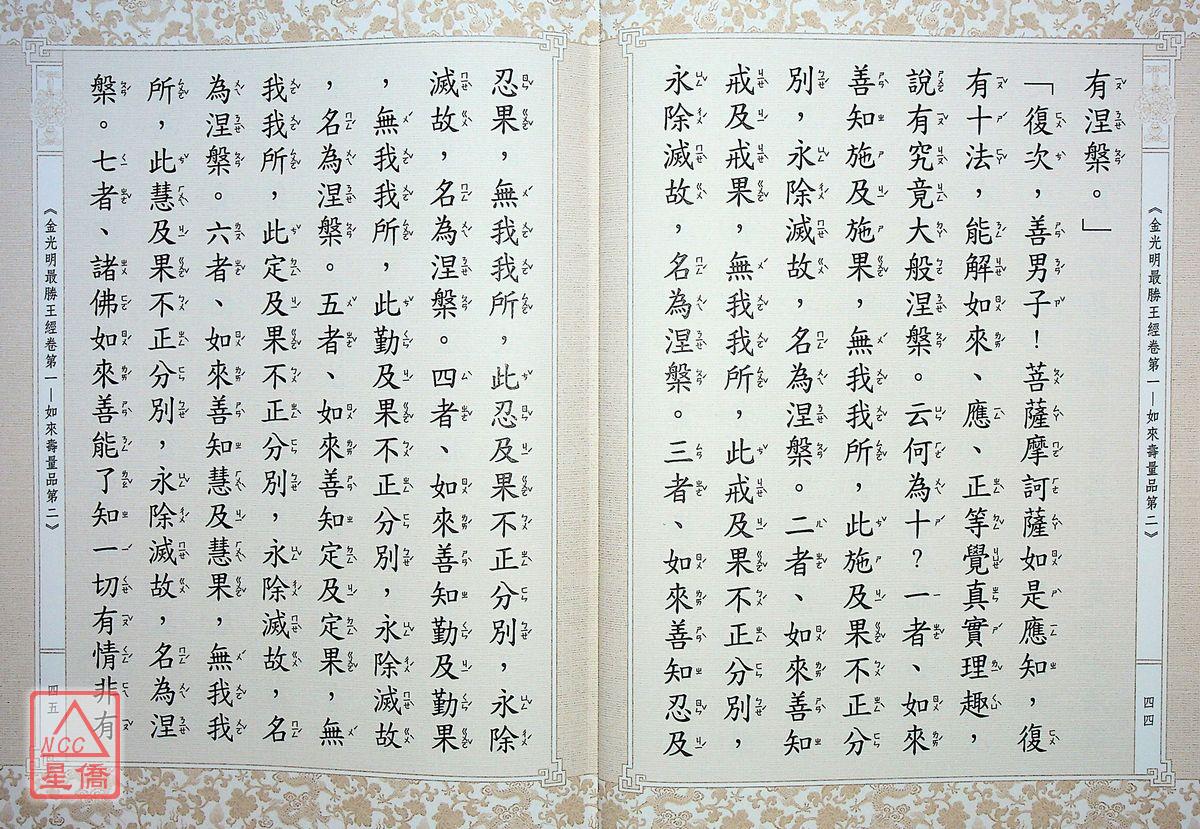 《金光明最勝王經卷第一—如來壽量品第二》
四四
有涅槃。」
「復次，善男子！菩薩摩訶薩如是應知，復
有十法，能解如來、應、正等覺真實理趣，
說有究竟大般涅槃。云何為十？一者、如來
善知施及施果，無我我所，此施及果不正分
別，永除滅故，名為涅槃。二者、如來善知
戒及戒果，無我我所，此戒及果不正分別，
永除滅故，名為涅槃。三者、如來善知忍及
忍果，無我我所，此忍及果不正分別，永除
滅故，名為涅槃。四者、如來善知勤及勤果
，無我我所，此勤及果不正分別，永除滅故
，名為涅槃。五者、如來善知定及定果，無
我我所，此定及果不正分別，永除滅故，名
為涅槃。六者、如來善知慧及慧果，無我我
所，此慧及果不正分別，永除滅故，名為涅
槃。七者、諸佛如來善能了知一切有情非有
《金光明最勝王經卷第一—如來壽量品第二》
四五
NCC
星僑